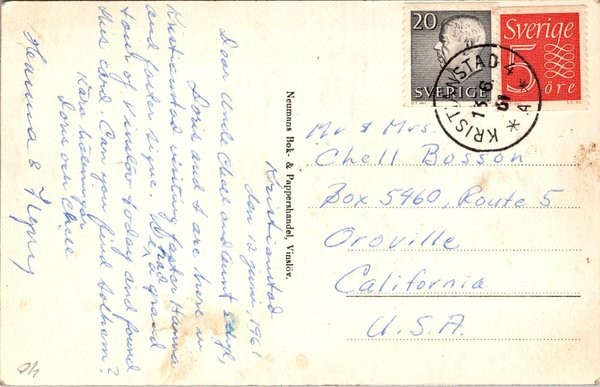 Kristianstad
den 12 juni, 1961
Dear Uncle Chell and aunt
Doris and I are here in
Kristianstad visiting faster Hanna
and farbr Signe. We had grand
tour of Vinslöv today and found
this card. Can you find Solhem?
Kära hälsningar
Doris och Chell
Hanna &
Neumans Bok- & Pappershandel, Vinslöv.
20
SVERIGE
Sverige
5
öre
KRISTIANSTAD 4
15 6
61
* A *
Mr & Mrs.
Chell Bosson
Box 5460, Route 5
Oroville
California
U.S.A.